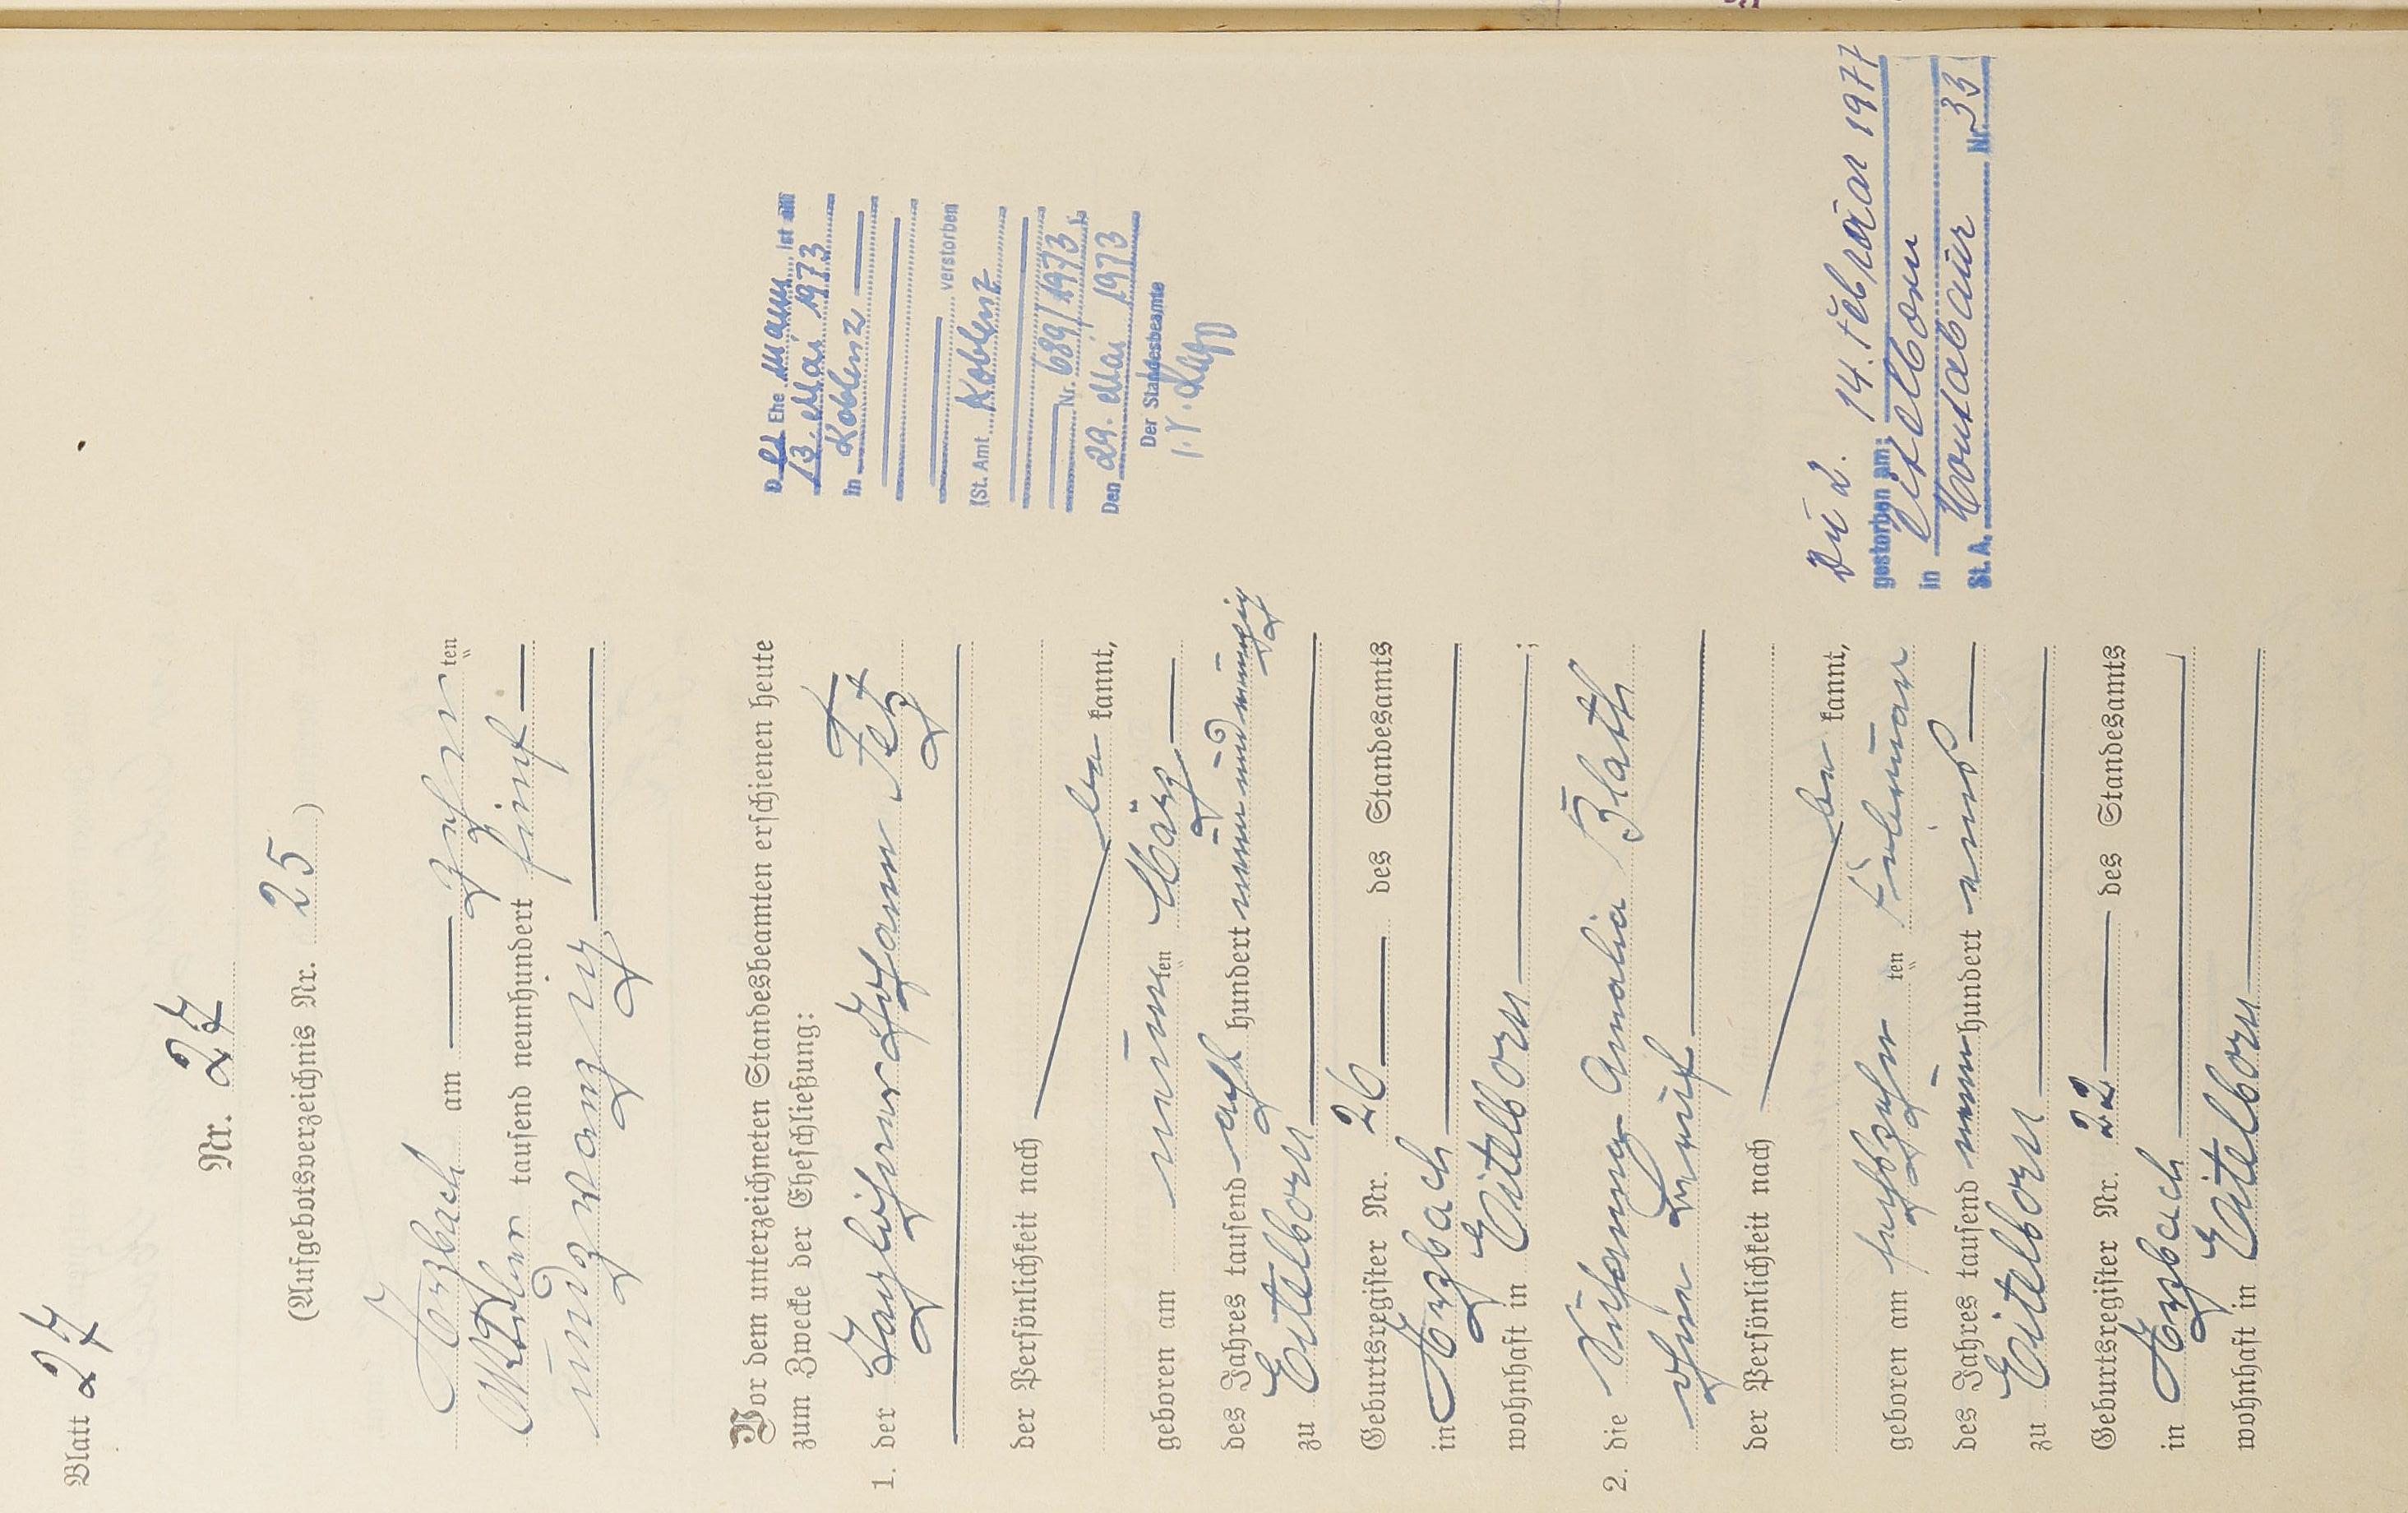 Blatt 27
Nr. 27
(Aufgebotsverzeichnis Nr. 25)
Arzbach am zehn ten
Oktober tausend neunhundert fünf
undzwanzig
Vor dem unterzeichneten Standesbeamten erschienen heute
zum Zwecke der Eheschließung:
1. der Taglöhner Johann Fetz
der Persönlichkeit nach
be kannt,
geboren am neunten März
des Jahres tausend acht hundert neunundneunzig
zu Eitelborn
Geburtsregister Nr. 26 des Standesamts
in Arzbach
wohnhaft in Eitelborn ;
D er Ehe mann ist am
13. Mai 1973
in Koblenz
verstorben
(St. Amt Koblenz
Nr. 689/1973)
Den 29. Mai 1973
Der Standesbeamte
2. die Susanna Amalia Blath
ohne Beruf
der Persönlichkeit nach
be kannt,
geboren am sechszehn ten Februar
des Jahres tausend neunhundert eins
zu Eitelborn
Geburtsregister Nr. 22 des Standesamts
in Arzbach
wohnhaft in Eitelborn
Zu 2. 14. Februar 1977
gestorben am:
in Eitelborn
St. A. Montabaur Nr. 33